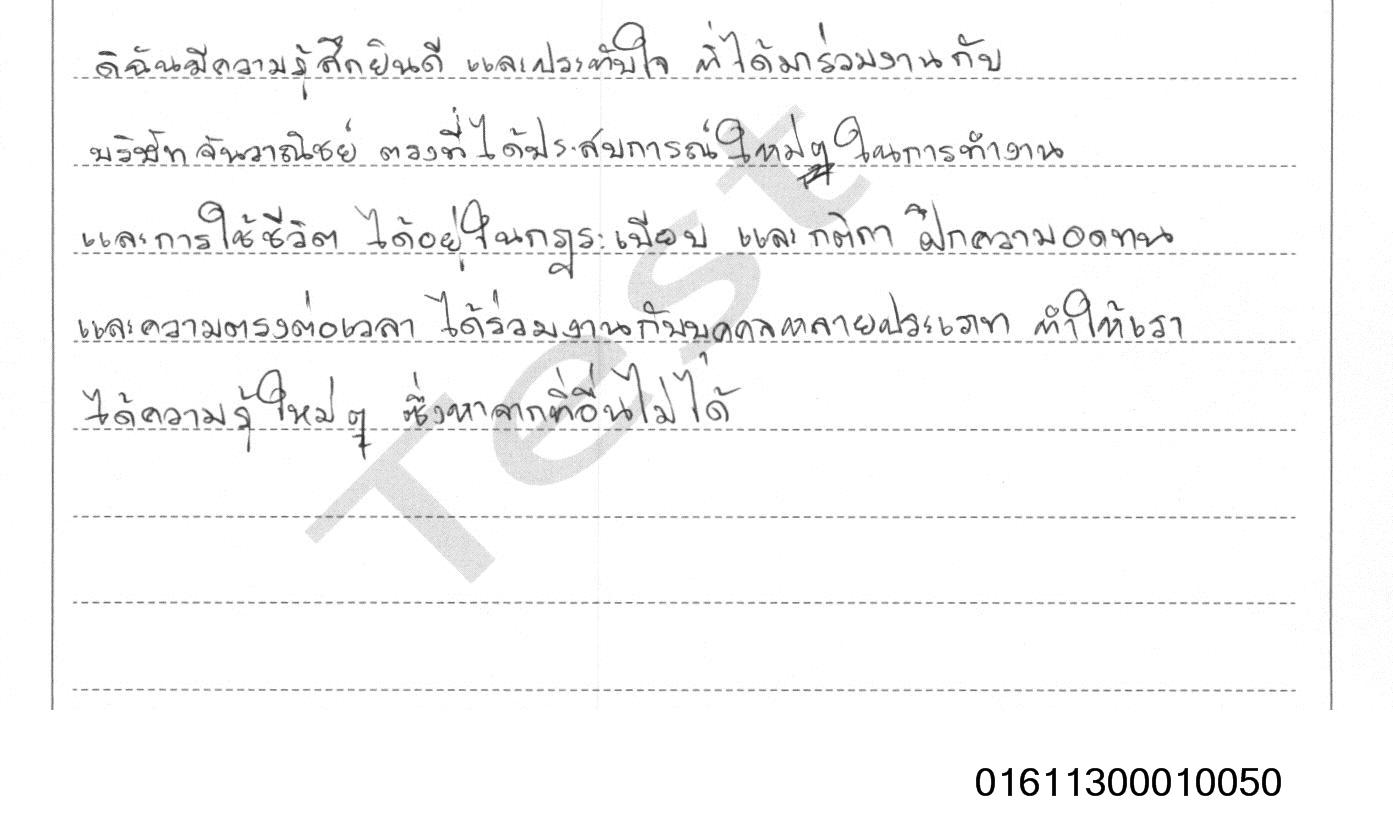 ดิฉันมีความรู้สึกยินดี และประทับใจ ที่ได้มาร่วมงานกับ
บริษัทจันวาณิชย์ ตรงที่ได้ประสบการณ์ใหม่ๆ ในการทำงาน
และการใช้ชีวิต ได้อยู่ในกฎระเบียบ และกติกา ฝึกความอดทน
และความตรงต่อเวลา ได้ร่วมงานกับบุคคลหลายประเภท ทำให้เรา
ได้ความรู้ใหม่ๆ ซึ่งหาจากที่อื่นไม่ได้
Test
01611300010050